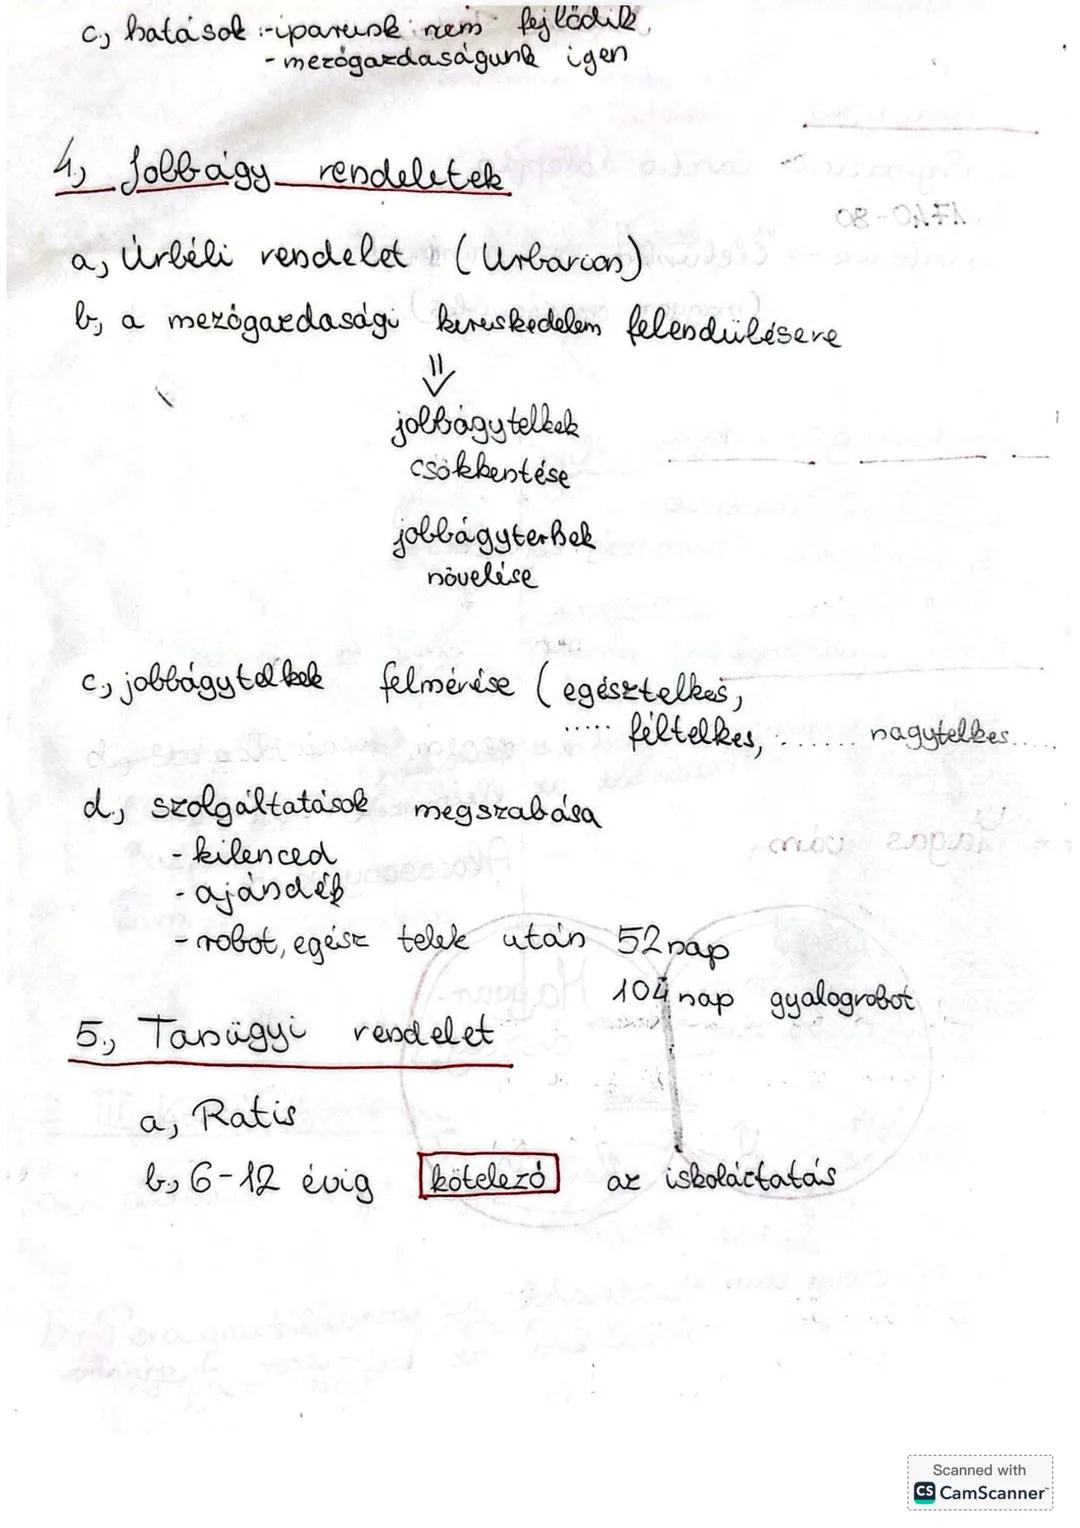 c, hatások :-iparunk nem fejlődik,
- mezőgazdaságunk igen
4, Jobbágy rendeletek
a, Úrbéli rendelet (Urbarion)
b, a mezőgazdasági kereskedelem fellendülésere
jobbágytelkek
csökkentése
jobbágyterhek
növelése
c, jobbágytelkek felmérése (egésztelkes,
..... féltelkes, ....... nagytelkes.....
d., szolgáltatások megszabása
- kilenced
- ajándék
- robot, egész telek után 52 nap
104 nap gyalogrobot
5., Tanügyi rendelet
a, Ratis
b, 6-12 évig kötelező az iskoláztatás
Scanned with
CS CamScanner